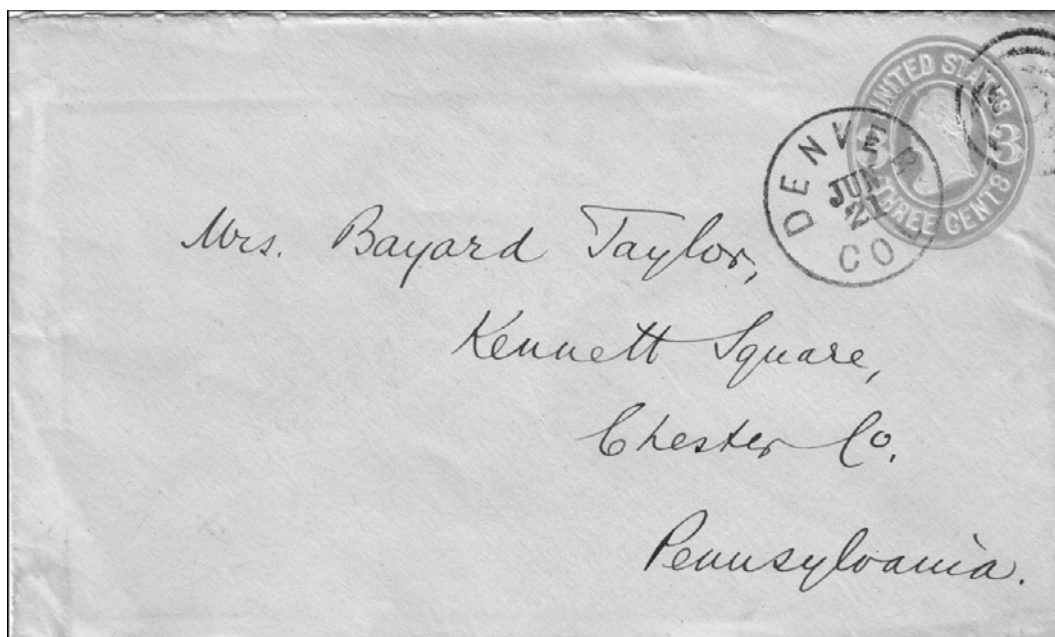 UNITED STATES
3 3
THREE CENTS
DENVER
JUN
CO
Mrs. Bayard Taylor,
Kennett Square,
Chester Co.
Pennsylvania.